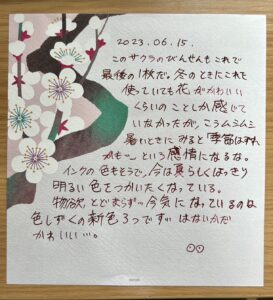 2023.06.15.
このサクラのびんせんもこれで
最後の1枚だ。冬のときにこれを
使っていても花がかわいい
くらいのことしか感じて
いなかったが、こうムシムシ
暑いときに みると「季節はずれ
かも…」という感情になるな。
インクの色もそうで、今は夏らしくはっきり
明るい色をつかいたくなっている。
物欲 とどまらず。今気になっているのは
色しずくの新色3つですっ はないかだ
かわいい…。